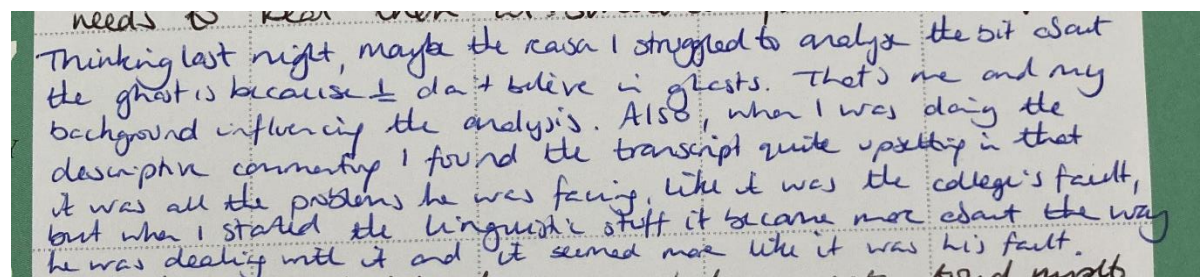 needs to
Thinking last night, maybe the reason I struggled to analyse the bit about
the ghost is because I don't believe in ghosts. That's me and my
background influencing the analysis. Also, when I was doing the
descriptive commenting I found the transcript quite upsetting in that
it was all the problems he was facing, like it was the college's fault,
but when I started the linguistic stuff it became more about the way
he was dealing with it and it seemed more like it was his fault.